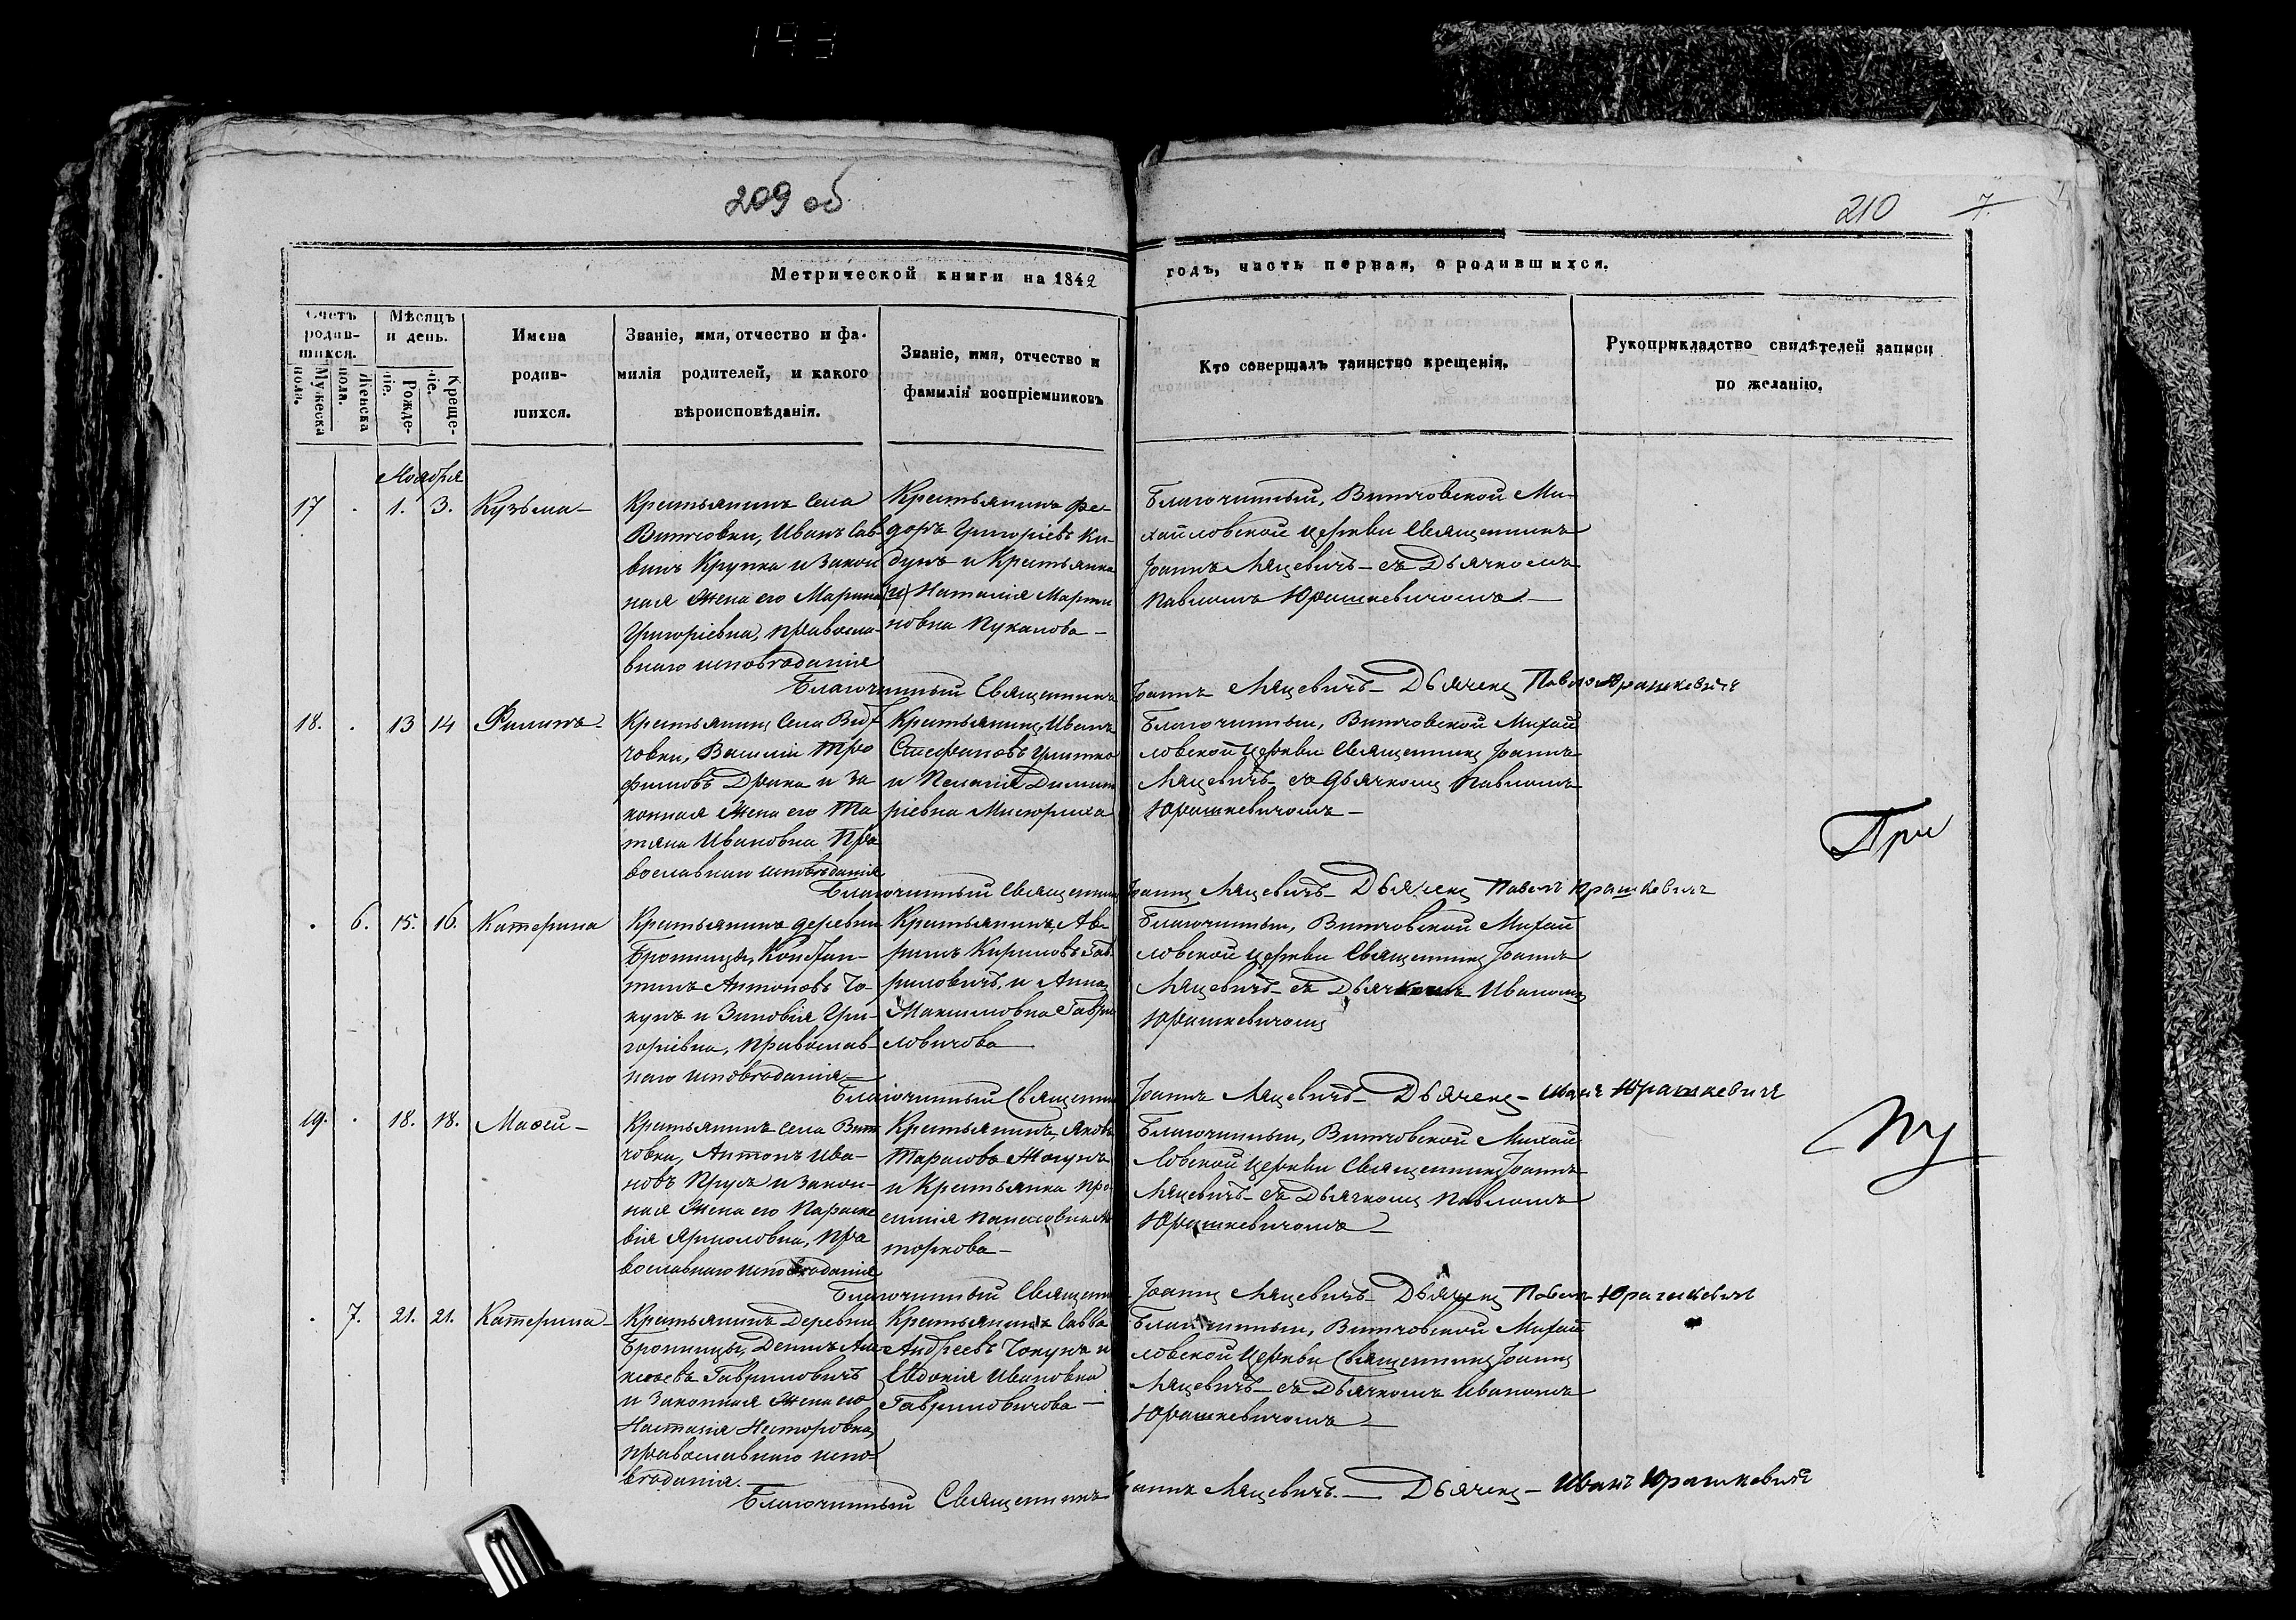 193
209 об
210
7.
Метрической книги на 1842
годъ, часть первая, о родившихся.
Счетъ родив-шихся.
Мужеска пола.
Женска пола.
Мѣсяцъ и день.
Рожде-ніе.
Креще-ніе.
Имена родив-шихся.
Званіе, имя, отчество и фа-
милія родителей, и какого
вѣроисповѣданія.
Званіе, имя, отчество и
фамилія воспріемниковъ
Кто совершалъ таинство крещенія.
Рукоприкладство свидѣтелей записи
по желанію.
Ноября
17 . 1. 3. Кузьма
Крестьянинъ села
Витчовки, Иванъ Сав-
винъ Крупка и закон
ная жена его Марина
Григоріевна, правосла-
внаго исповѣданія
Крестьянинъ Фе-
доръ Григоріевъ
и Крестьянка
Наталія Марти
новна Пукалова
Благочинный, Витчовской Ми-
хайловской церкви Священникъ
Іоаннъ Мацевичъ съ Дьячкомъ
Павломъ Юрашкевичомъ
Благочинный Священникъ Іоаннъ Мацевичъ Дьячекъ Павелъ Юрашкевичъ
18. . 13 14 Филипъ
Крестьянинъ села Вит
човки, Василій Тро
фимовъ Дрика и за
конная жена его Та
тяна Ивановна Пра
вославнаго исповѣданія
Крестьянинъ Иванъ
Стефановъ
и Пелагія Димит
ріевна
Благочинный, Витчовской Михай
ловской церкви Священникъ Іоаннъ
Мацевичъ съ дьячкомъ Павломъ
Юрашкевичомъ
При
Благочинный Священникъ Іоаннъ Мацевичъ Дьячекъ Павелъ Юрашкевичъ
. 6. 15. 16. Катерина
Крестьянинъ деревни
Броницы, Констан-
тинъ Антоновъ Чо-
кунъ и Зиновія Гри-
горіевна, православ-
наго исповѣданія
Крестьянинъ
Кириловъ Гав
риловичъ и Анна
Максимовна Гаври
ловичова
Благочинный, Витчовской Михай
ловской церкви Священникъ Іоаннъ
Мацевичъ съ Дьячкомъ Иваномъ
Юрашкевичомъ
Благочинный Священникъ Іоаннъ Мацевичъ Дьячекъ Иванъ Юрашкевичъ
19. . 18. 18. Маѳей
Крестьянинъ села Вит
човки, Антонъ Ива-
новъ Прусъ и закон-
ная жена его Параске
вія Ярмоловна, Пра
вославнаго исповѣданія
Крестьянинъ Яковъ
Тарасовъ
и Крестьянка
Благочинный, Витчовской Михай
ловской церкви Священникъ Іоаннъ
Мацевичъ съ Дьячкомъ Павломъ
Юрашкевичомъ
Пу
Благочинный Священникъ Іоаннъ Мацевичъ Дьячекъ Павелъ Юрашкевичъ
. 7. 21. 21. Катерина
Крестьянинъ Деревни
Броницы, Денисъ Али
ксѣевъ Гавриловичъ
и законная жена его
Настазія Несторовна,
православнаго испо-
вѣданія.
Крестьянинъ Савва
Андреевъ Чокунъ и
Евдокія Ивановна
Гавриловичова
Благочинный, Витчовской Михай
ловской церкви Священникъ Іоаннъ
Мацевичъ съ Дьячкомъ Иваномъ
Юрашкевичомъ
Благочинный Священникъ Іоаннъ Мацевичъ. Дьячекъ Иванъ Юрашкевичъ